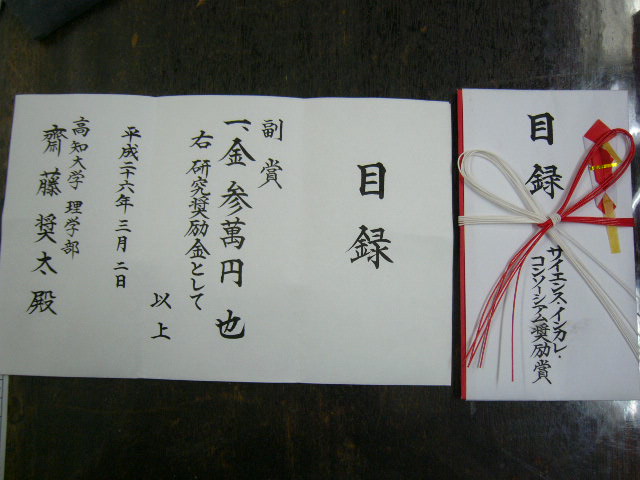 目録
副賞
一、金参萬円也
右 研究奨励金として
以上
平成二十六年三月二日
高知大学 理学部
齋藤奨太殿
目録
サイエンス・インカレ・
コンソーシアム奨励賞